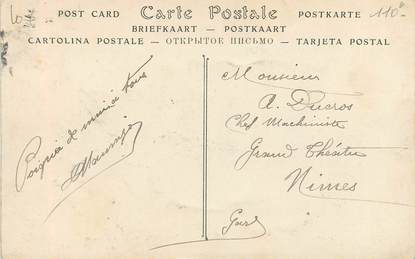 POST CARD Carte Postale POSTKARTE
BRIEFKAART — POSTKAART
CARTOLINA POSTALE – ОТКРЫТОЕ ПИСЬМО – TARJETA POSTAL
110
Poignée de main à tous
Monsieur
A. Ducros
Chef Machiniste
Grand Théâtre
Nimes
Gard